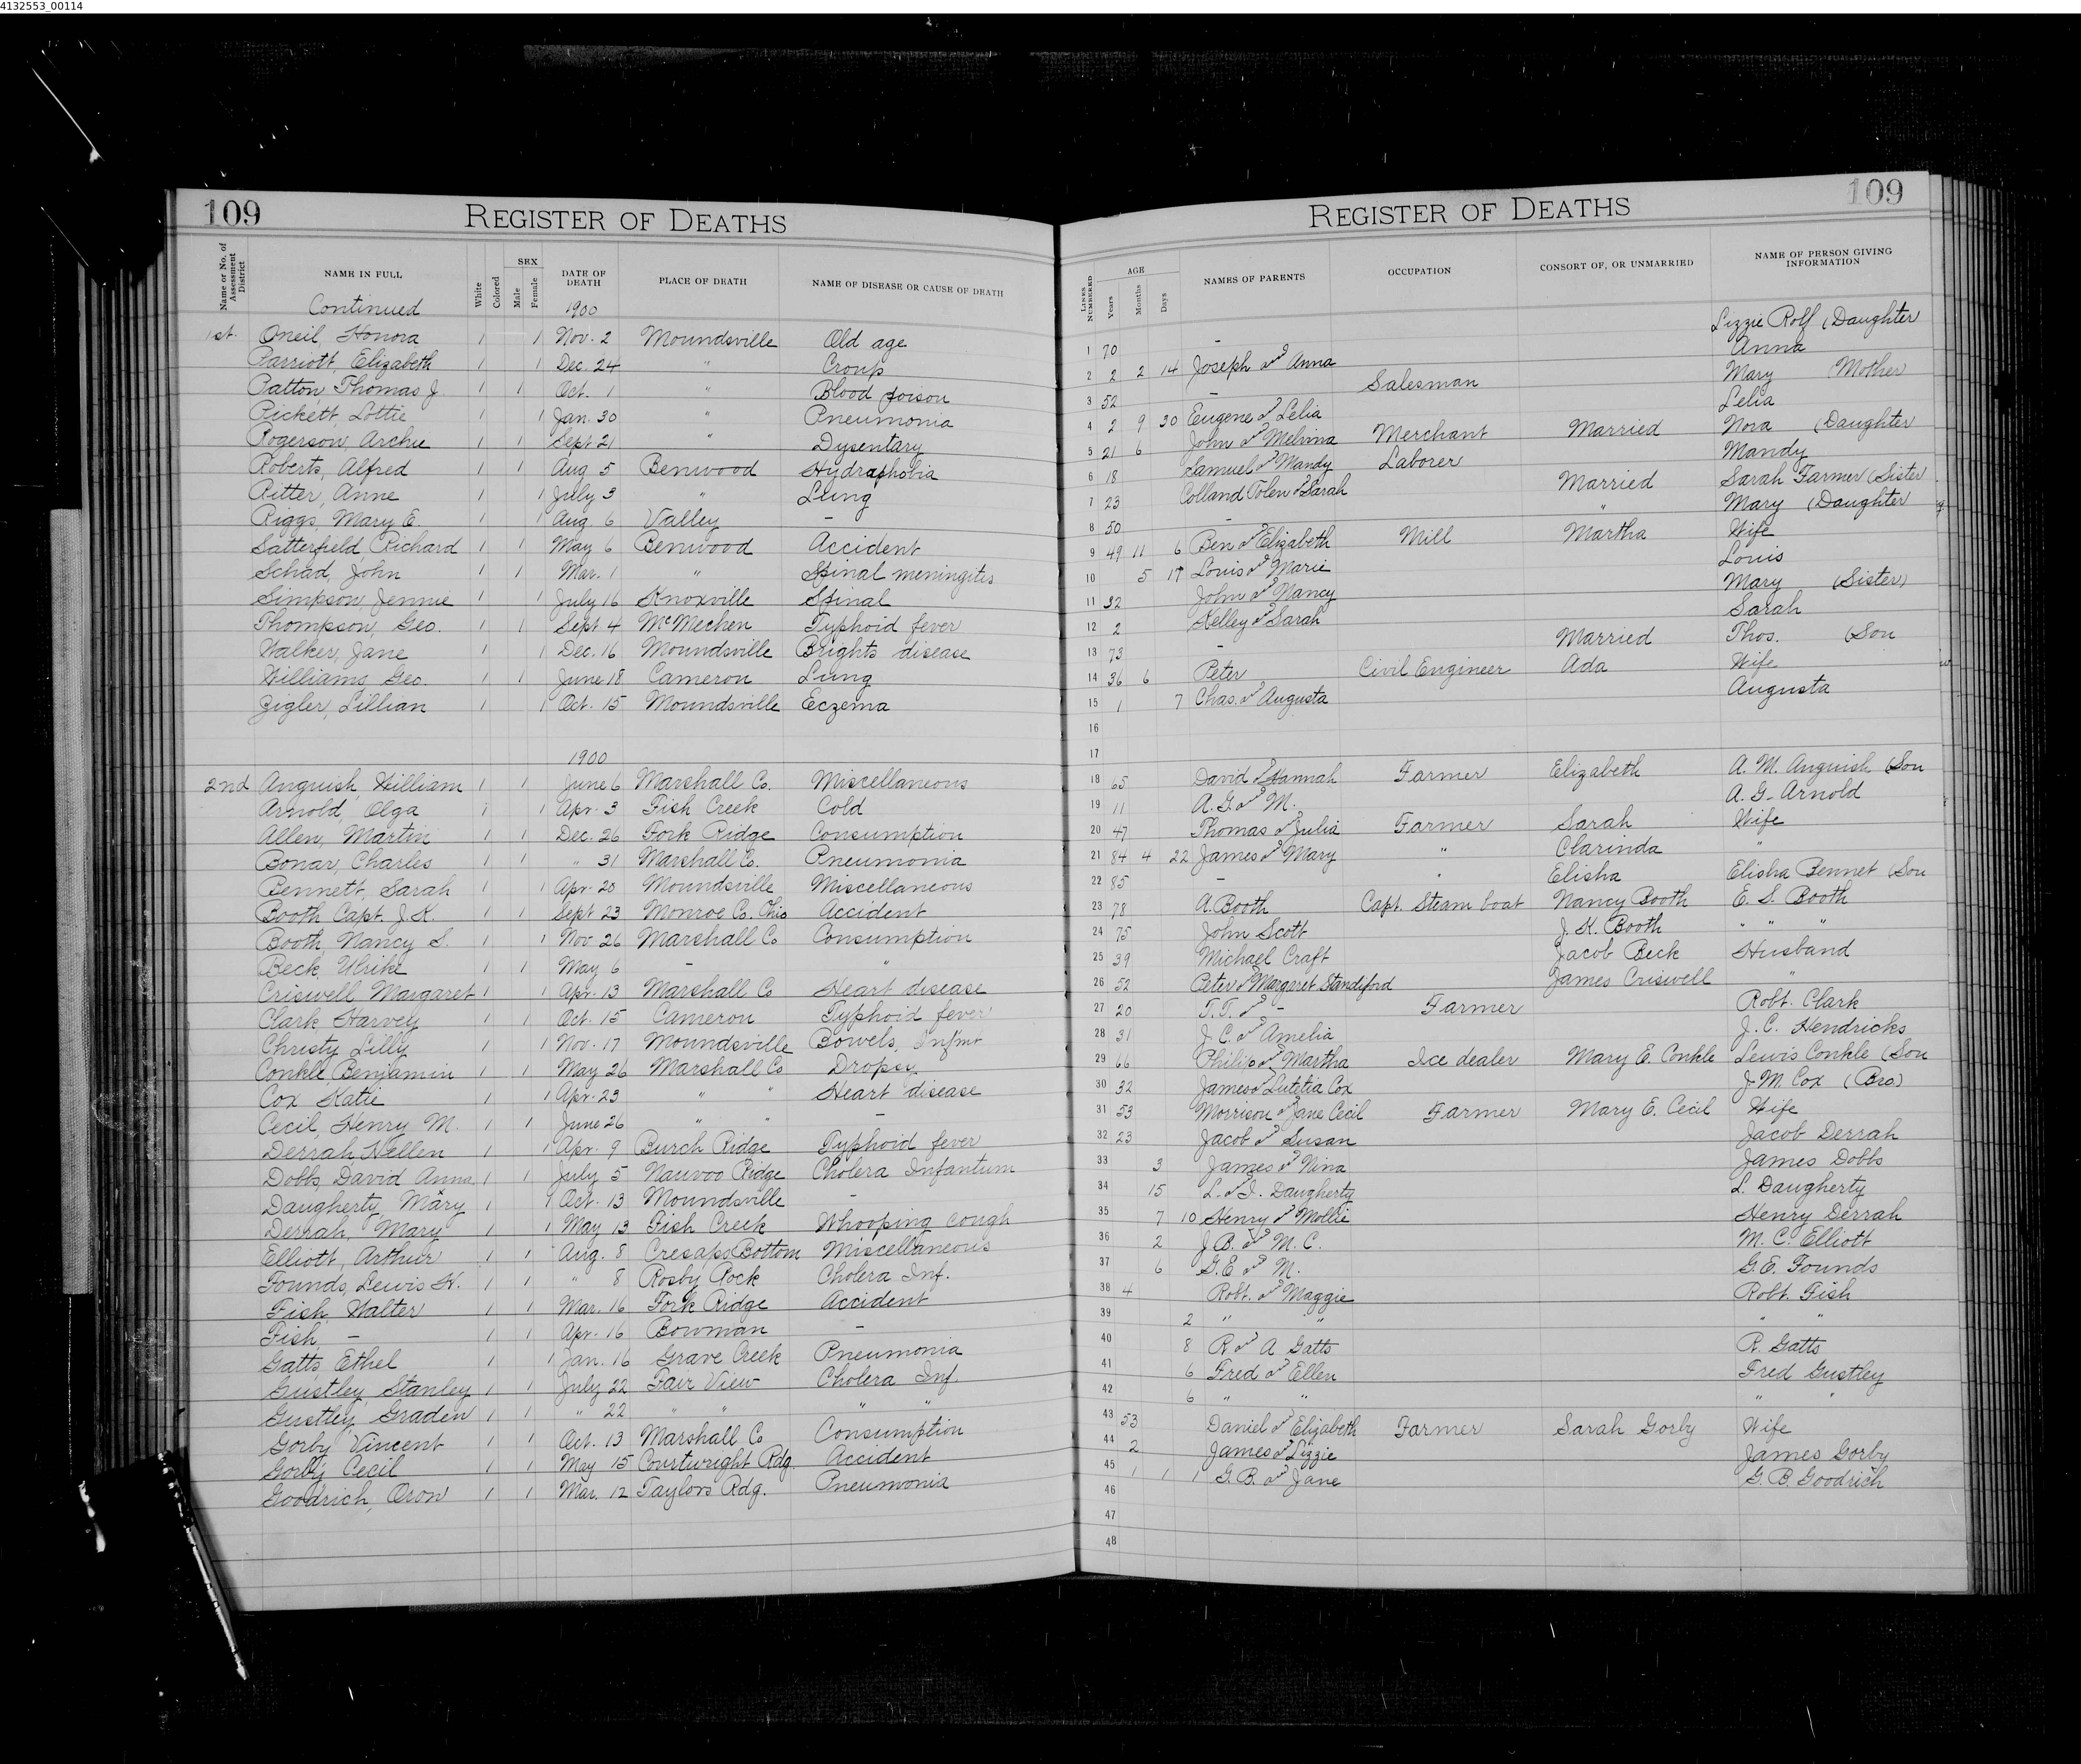 4132553_00114
109 REGISTER OF DEATHS
Name or No. of Assessment District NAME IN FULL White Colored SEX Male Female DATE OF DEATH PLACE OF DEATH NAME OF DISEASE OR CAUSE OF DEATH
Continued 1900
1st. Oneil, Honora 1 1 Nov. 2 Moundsville Old age
Parriott, Elizabeth 1 1 Dec. 24 " Croup
Patton, Thomas J 1 1 Oct. 1 " Blood poison
Rickett, Lottie 1 1 Jan. 30 " Pneumonia
Rogerson, Archie 1 1 Sept 21 " Dysentary
Roberts, Alfred 1 1 Aug 5 Benwood Hydraphobia
Ritter, Anne 1 1 July 3 " Lung
Riggs, Mary E. 1 1 Aug. 6 Valley -
Satterfield Richard 1 1 May 6 Benwood Accident
Schad, John 1 1 Mar. 1 " Spinal meningites
Simpson, Jennie 1 1 July 16 Knoxville Spinal
Thompson, Geo. 1 1 Sept 4 McMechen Typhoid fever
Walker, Jane 1 1 Dec. 16 Moundsville Brights disease
Williams, Geo. 1 1 June 18 Cameron Lung
Zigler, Lillian 1 1 Oct. 15 Moundsville Eczema
1900
2nd Anguish, William 1 1 June 6 Marshall Co. Miscellaneous
Arnold, Olga 1 1 Apr. 3 Fish Creek Cold
Allen, Martin 1 1 Dec. 26 Fork Ridge Consumption
Bonar, Charles 1 1 " 31 Marshall Co. Pneumonia
Bennett, Sarah 1 1 Apr. 20 Moundsville Miscellaneous
Booth, Capt. J. K. 1 1 Sept 23 Monroe Co. Ohio Accident
Booth, Nancy S. 1 1 Nov. 26 Marshall Co Consumption
Beck, Ulrike 1 1 May 6 - "
Criswell Margaret 1 1 Apr. 13 Marshall Co Heart disease
Clark Harvey 1 1 Oct. 15 Cameron Typhoid fever
Christy Lilly 1 1 Nov. 17 Moundsville Bowels, Inf'mt
Conkle, Benjamin 1 1 May 26 Marshall Co Dropsy
Cox Katie 1 1 Apr. 23 " " Heart disease
Cecil, Henry M. 1 1 June 26 " " -
Derrah, Hellen 1 1 Apr. 9 Burch Ridge Typhoid fever
Dobbs, David Anna 1 1 July 5 Nauvoo Ridge Cholera Infantum
Daugherty, Mary 1 1 Oct. 13 Moundsville -
Derrah, Mary 1 1 May 13 Fish Creek Whooping cough
Elliott, Arthur 1 1 Aug. 8 Cresaps Bottom Miscellaneous
Founds, Lewis H. 1 1 " 8 Rosby Rock Cholera Inf.
Fish, Walter 1 1 Mar. 16 Fork Ridge Accident
Fish, - 1 1 Apr. 16 Bowman -
Gatts, Ethel 1 1 Jan. 16 Grave Creek Pneumonia
Gustley, Stanley 1 1 July 22 Fair View Cholera Inf.
Gustley, Graden 1 1 " 22 " " " "
Gorby, Vincent 1 1 Oct. 13 Marshall Co Consumption
Gorby, Cecil 1 1 May 15 Courtwright Rdg. Accident
Goodrich, Oron 1 1 Mar. 12 Taylors Rdg. Pneumonia
REGISTER OF DEATHS 109
LINES NUMBERED AGE Years Months Days NAMES OF PARENTS OCCUPATION CONSORT OF, OR UNMARRIED NAME OF PERSON GIVING INFORMATION
1 70 - Lizzie Rolf (Daughter
2 2 2 14 Joseph and Anna Anna
3 52 - Salesman Mary (Mother
4 2 9 30 Eugene & Lelia Lelia
5 21 6 John and Melvina Merchant Married Nora (Daughter
6 18 Samuel and Mandy Laborer Mandy
7 23 Colland Tolen & Sarah Married Sarah Farmer (Sister
8 50 - " Mary (Daughter
9 49 11 6 Ben & Elizabeth Mill Martha Wife
10 5 17 Louis & Marie Louis
11 32 John & Nancy Mary (Sister)
12 2 Kelley & Sarah Sarah
13 73 - Married Thos. (Son
14 36 6 Peter Civil Engineer Ada Wife
15 1 7 Chas. & Augusta Augusta
16
17
18 65 David & Hannah Farmer Elizabeth A. M. Anguish (Son
19 11 A. G. and M. A. G. Arnold
20 47 Thomas & Julia Farmer Sarah Wife
21 84 4 22 James & Mary " Clarinda "
22 85 - " Elisha Elisha Bennet (Son
23 78 A. Booth Capt. Steam boat Nancy Booth E. S. Booth
24 75 John Scott J. K. Booth " "
25 39 Michael Craft Jacob Beck Husband
26 52 Peter & Margaret Standiford James Criswell "
27 20 T. T. and - Farmer Robt. Clark
28 31 J. C. & Amelia J. C. Hendricks
29 66 Philip & Martha Ice dealer Mary E. Conkle Lewis Conkle (Son
30 32 James & Lutetia Cox J. M. Cox (Bro.)
31 53 Morrison & Jane Cecil Farmer Mary E. Cecil Wife
32 23 Jacob and Susan Jacob Derrah
33 3 James & Nina James Dobbs
34 15 L. & I. Daugherty L. Daugherty
35 7 10 Henry & Mollie Henry Derrah
36 2 J. B. and M. C. M. C. Elliott
37 6 G. E and M. G. E. Founds
38 4 Robt. and Maggie Robt. Fish
39 2 " " " "
40 8 R and A Gatts R. Gatts
41 6 Fred & Ellen Fred Gustley
42 6 " " " "
43 53 Daniel & Elizabeth Farmer Sarah Gorby Wife
44 2 James & Lizzie James Gorby
45 1 1 1 G. B. and Jane G. B. Goodrich
46
47
48